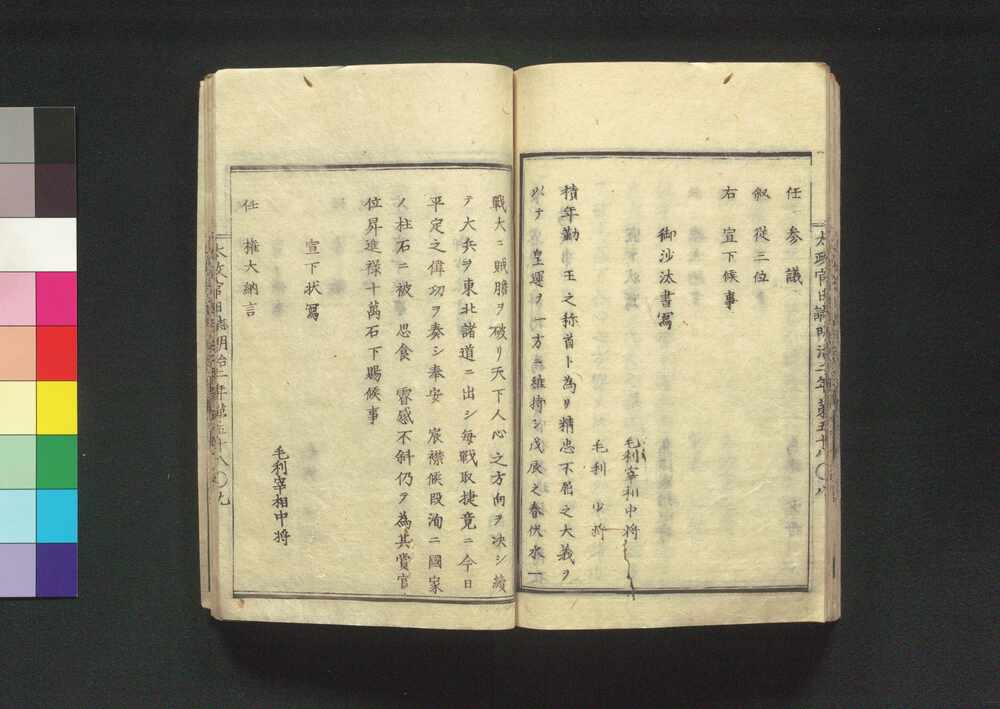 任 参議
叙 従三位
右 宣下候事
御沙汰書寫
毛利宰相中将
毛利 中将
積年勤 王之称首ト為リ精忠不屈之大義ヲ
以テ 皇運ヲ一方ニ維持シ戊辰之春伏水一
太政官日誌明治二年 第五十八 〇八
戰大ニ賊膽ヲ破リ天下人心之方向ヲ决シ續
テ大兵ヲ東北諸道ニ出シ毎戰取捷竟ニ今日
平定之偉功ヲ奏シ奉安 宸襟候段洵ニ國家
ノ柱石ニ被 思食 叡感不斜仍テ為其賞官
位昇進禄十萬石下賜候事
宣下状寫
毛利宰相中将
任 権大納言
太政官日誌明治二年 第五十八 〇九